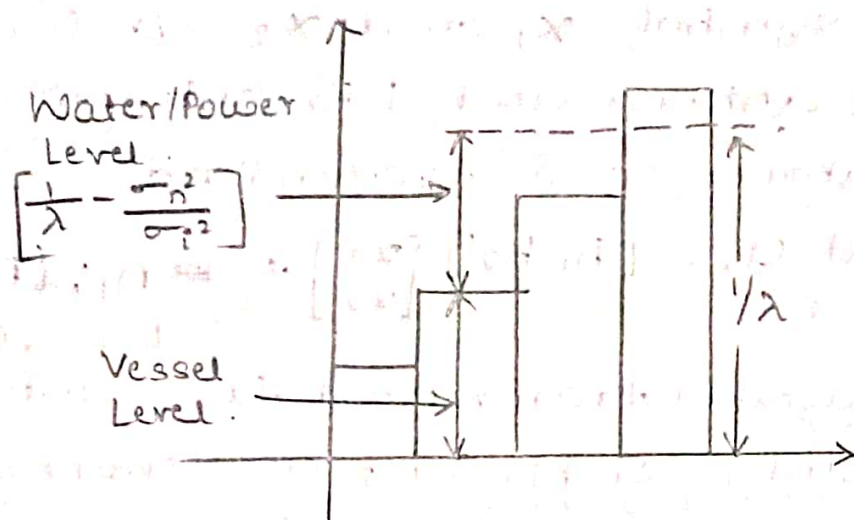 Water/Power
Level.
[1/λ - σn²/σi²]
1/λ
Vessel
Level.